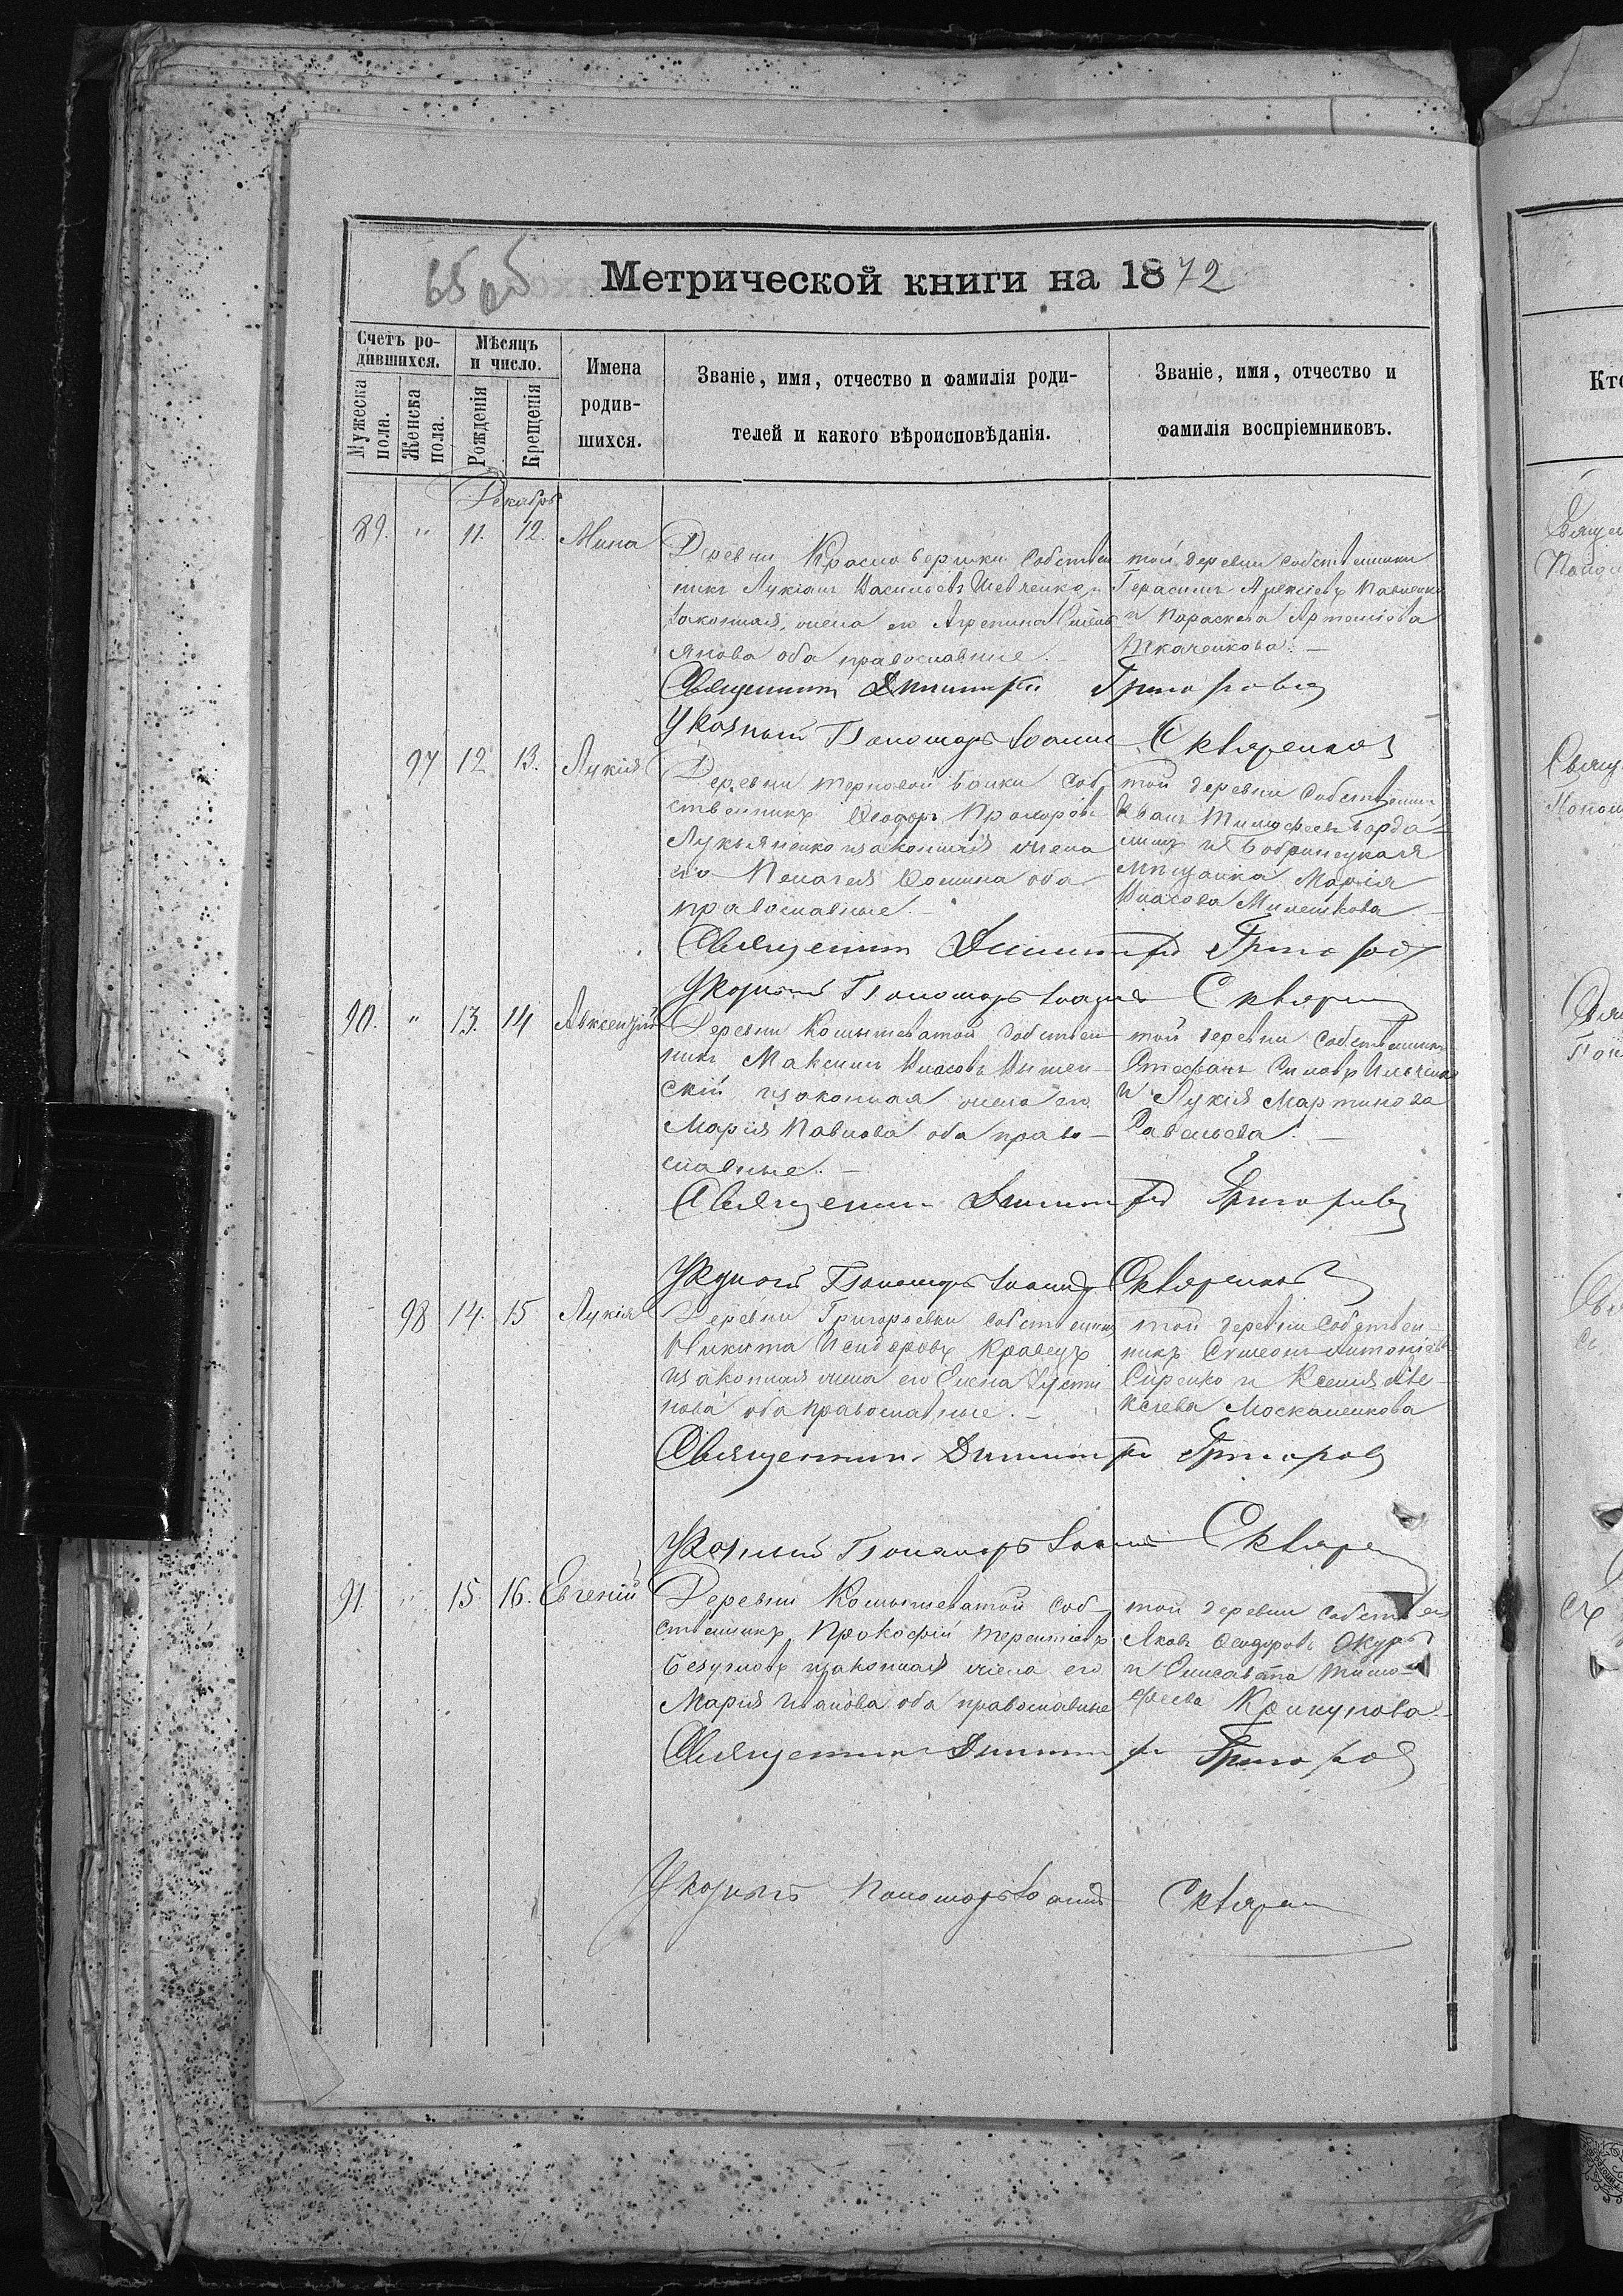 65 об
Метрической книги на 1872
Счетъ ро-
дившихся.
Мѣсяцъ
и число.
Мужеска
пола.
Женска
пола.
Рожденія
Крещенія
Имена
родив-
шихся.
Званіе, имя, отчество и фамилія роди-
телей и какого вѣроисповѣданія.
Званіе, имя, отчество и
фамилія воспріемниковъ.
Декабрь
89. " 11. 12. Мина
Деревни Красновершки собствен
никъ Лукіанъ Васильевъ Шевченко и
законная жена его Агрепина Емель
янова оба православные. –
той деревни собственники
Герасимъ Алексіевъ Павленко
и Параскева Артемова
Ткаченкова. –
Священникъ Димитрій Григоровъ
Указный Пономарь Іоаннъ Скляренко
97 12 13. Лукія
Деревни Терновой Балки соб
ственникъ Ѳеодоръ Прохоровъ
Лукьяненко и законная жена
его Пелагея Ѳомина оба
православные. –
той деревни собственникъ
Иванъ Тимофеевъ
и Бобринецкая
мѣщанка Марія
Власова
Священникъ Димитрій Григоров
Указный Пономарь Іоаннъ Скляр
90. " 13. 14 Авксентій
Деревни Комышеватой собствен
никъ Максимъ Власовъ
скій и законная жена его
Марія Павлова оба право –
славные. –
той деревни собственники
Стефанъ
и Лукія Мартинова
Савельева. –
Священник Димитрій Григоров
Указный Пономарь Іоаннъ Скляренко
98 14. 15 Лукія
Деревни Григорьевки собственникъ
Никита Исидоровъ Кравецъ
и законная жена его Елена Усти
нова оба православные. –
той деревни собствен –
никъ Симеонъ Антоніевъ
Сиренко и Ксенія Але –
ксѣева Москаленкова
Священник Димитрій Григоров
Указный Пономарь Іоаннъ Скляре
91. " 15. 16. Евгеній
Деревни Комышеватой соб –
ственникъ Прокофій Терентіевъ
Безугловъ и законная жена его
Марія Иванова оба православные
той деревни собствен
Яковъ Ѳеодоровъ
и Елисавета Тимо –
феева Крикунова. –
Священник Димитрій Григоров
Указный Пономарь Іоаннъ Скляре
Кто